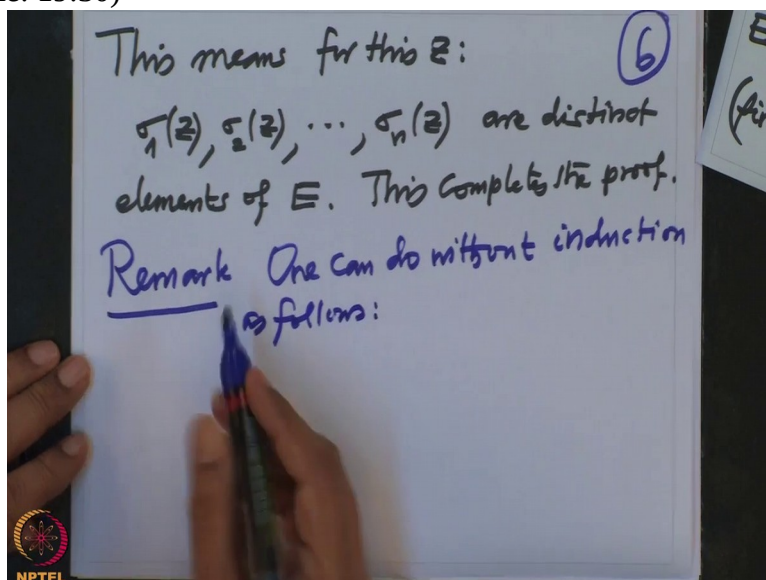 This means for this z: 6
σ₁(z), σ₂(z), ⋯, σₙ(z) are distinct
elements of E. This completes the proof.
Remark One can do without induction
as follows:
E
NPTEL